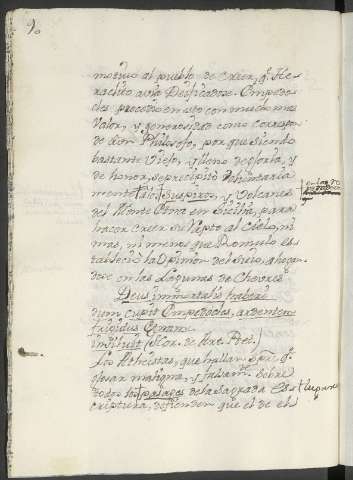 90
motivo al pueblo de creer, q.e He-
raclito avia Deificadose. Empedo-
cles procedió en esto con mucho mas
valor, y generosidad como
de un Philosofo, por que siendo
bastante viejo, y lleno de gloria, y
de honor, se precipitó voluntaria
mente Suspiros, y Volcanes
del Monte Etna en Sicilia, para
hacer creer su Rapto al Cielo, ni
mas, ni menos que Romulo es-
tableció la Opinion del suio, ahogan
dose en las Lagunas de Chevres.
Deus immortalis haberi
dum cupit Empedocles, ardentem
frigidus Etnam
insiluit (Hor. de Arte Poet.)
Los Atheistas, que hallan sp.re q.e
glosar maligna, y falsam.te sobre
todos los pasages de la Sagrada Es-
criptura, defienden que el de el